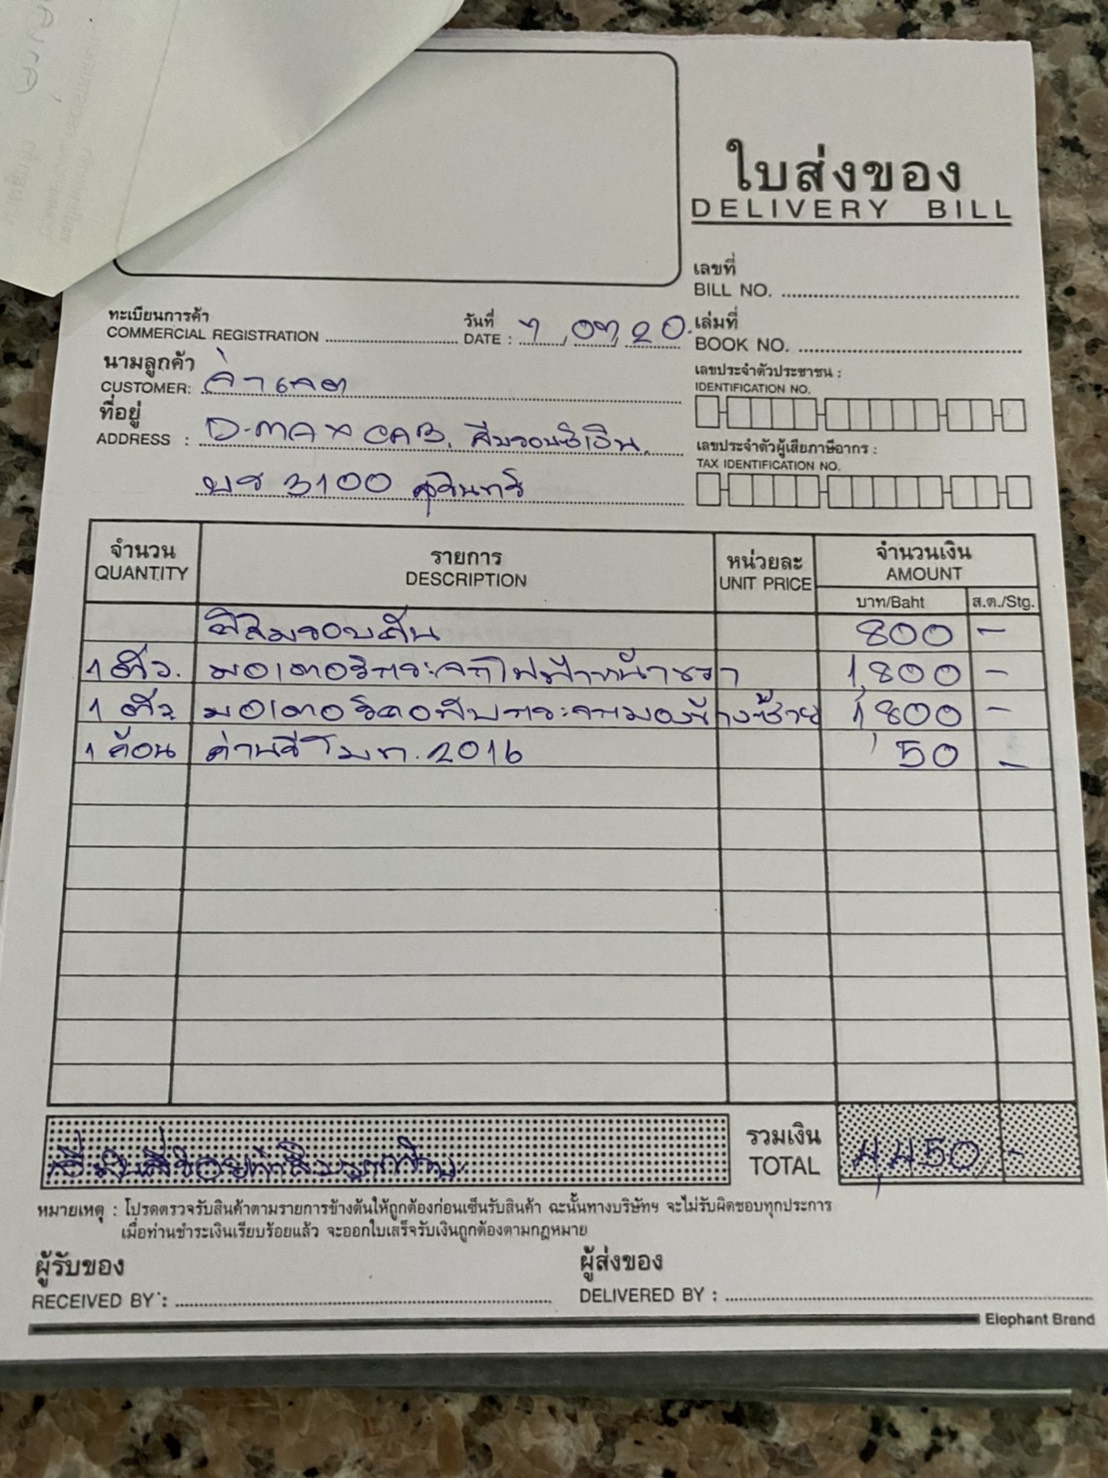 ใบส่งของ
DELIVERY BILL
เลขที่
BILL NO.
ทะเบียนการค้า
COMMERCIAL REGISTRATION
วันที่
DATE : 7, 07, 20.
เล่มที่
BOOK NO.
นามลูกค้า
CUSTOMER:
เลขประจำตัวประชาชน :
IDENTIFICATION NO.
ที่อยู่
ADDRESS : D-MAX CAB.
เลขประจำตัวผู้เสียภาษีอากร :
TAX IDENTIFICATION NO.
3100 สุรินทร์
จำนวน รายการ หน่วยละ จำนวนเงิน
QUANTITY DESCRIPTION UNIT PRICE AMOUNT
บาท/Baht ส.ต./Stg.
ฟิล์มรอบคัน 800 -
1 ตัว. มอเตอร์กระจกไฟฟ้าหน้าขวา 1,800 -
1 ตัว มอเตอร์คอพับกระจกมองข้างซ้าย 1,800 -
1 ก้อน ถ่านรีโมท. 2016 50 -
รวมเงิน
TOTAL 4,450 -
สี่พันสี่ร้อยห้าสิบบาทถ้วน
หมายเหตุ : โปรดตรวจรับสินค้าตามรายการข้างต้นให้ถูกต้องก่อนเซ็นรับสินค้า ฉะนั้นทางบริษัทฯ จะไม่รับผิดชอบทุกประการ
เมื่อท่านชำระเงินเรียบร้อยแล้ว จะออกใบเสร็จรับเงินถูกต้องตามกฎหมาย
ผู้รับของ
RECEIVED BY :
ผู้ส่งของ
DELIVERED BY :
Elephant Brand